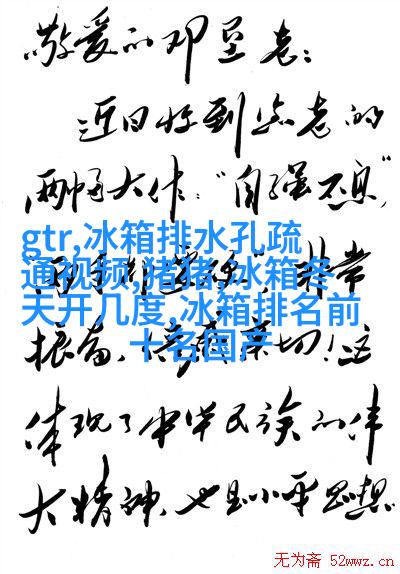 敬爱的邓垦老：
近日收到您老的
两幅大作："自强不息"
gtr,冰箱排水孔疏
通视频,猪猪,冰箱冬
天开几度,冰箱排名前
十名国产
非常
振奋、亲切！这
体现了中华民族的伟
大精神,也是小平思想
无为斋 52wwz.cn